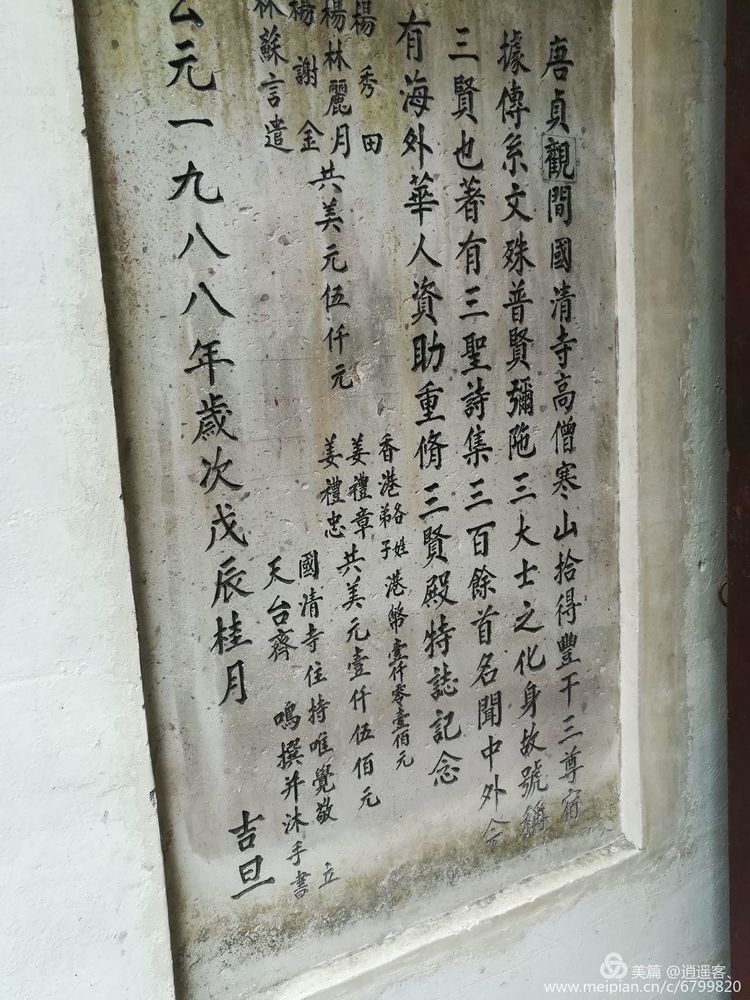 唐貞觀間國清寺高僧寒山拾得豐干三尊宿
據傳系文殊普賢彌陁三大士之化身故號稱
三賢也著有三聖詩集三百餘首名聞中外今
有海外華人資助重脩三賢殿特誌記念
楊秀田
楊林麗月
楊謝金
林蘇言遣
共美元伍仟元
香港各姓弟子港幣壹仟零壹佰元
姜禮章
姜禮忠
共美元壹仟伍佰元
國清寺住持唯覺敬立
天台齊鳴撰并沐手書
公元一九八八年歲次戊辰桂月吉旦
美篇 @逍遥客、
www.meipian.cn/c/6799820